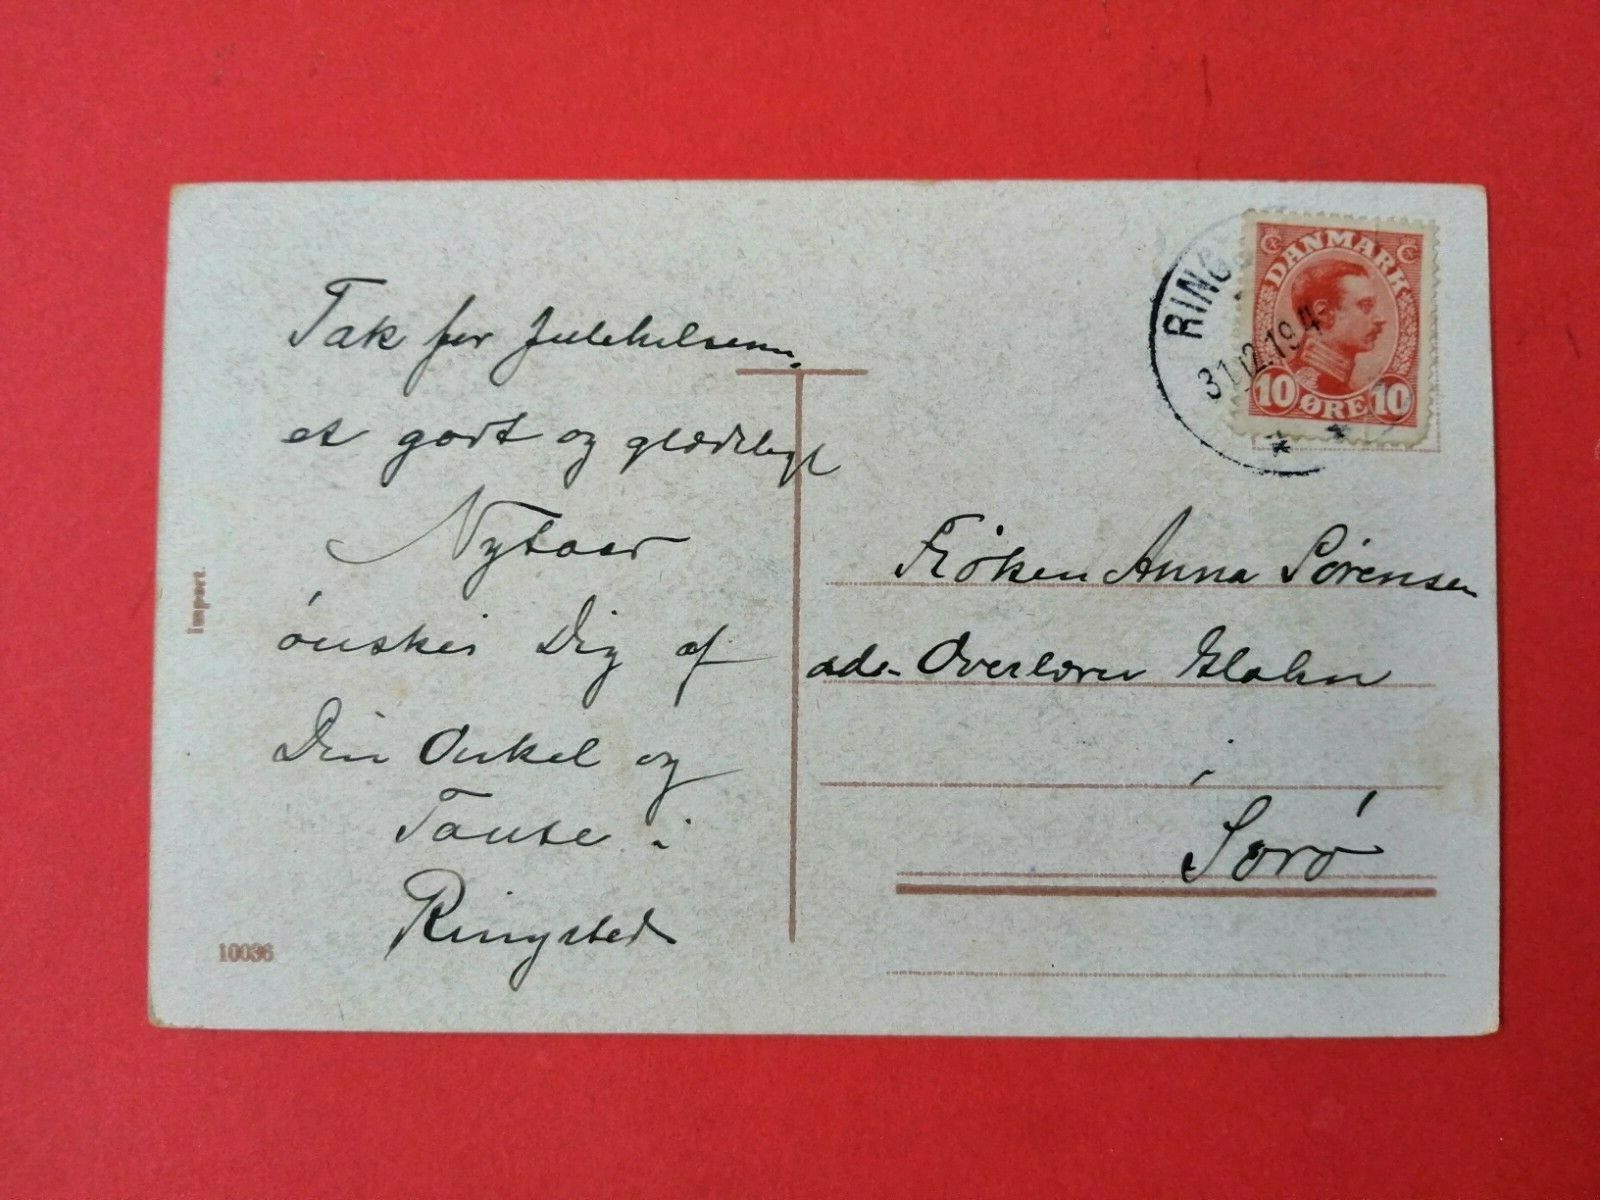 Tak for Julehilsenen,
et godt og glædeligt
Nytaar
ønskes Dig af
Din Onkel og
Tante i
Ringsted
Import
10036
RING
31.12.19.4-
DANMARK
10 ØRE 10
Frøken Anna Sørensen
adr. Overlærer Glahn
i
Sorø